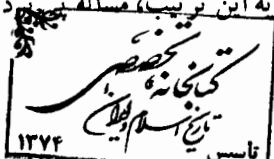 به این ترتیب، مسئله
کتابخانه تخصصی
تاریخ اسلام و ایران
۱۳۷۴
تأسیس